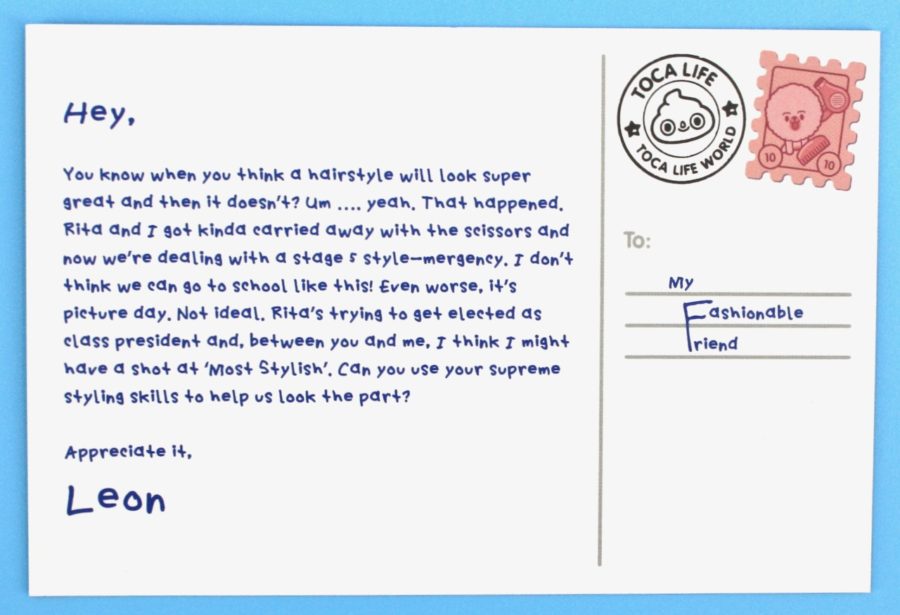 Hey,
You know when you think a hairstyle will look super
great and then it doesn't? Um .... yeah. That happened.
Rita and I got kinda carried away with the scissors and
now we're dealing with a stage 5 style-mergency. I don't
think we can go to school like this! Even worse, it's
picture day. Not ideal. Rita's trying to get elected as
class president and, between you and me, I think I might
have a shot at 'Most Stylish'. Can you use your supreme
styling skills to help us look the part?
Appreciate it,
Leon
TOCA LIFE
TOCA LIFE WORLD
10
10
To:
My
Fashionable
Friend